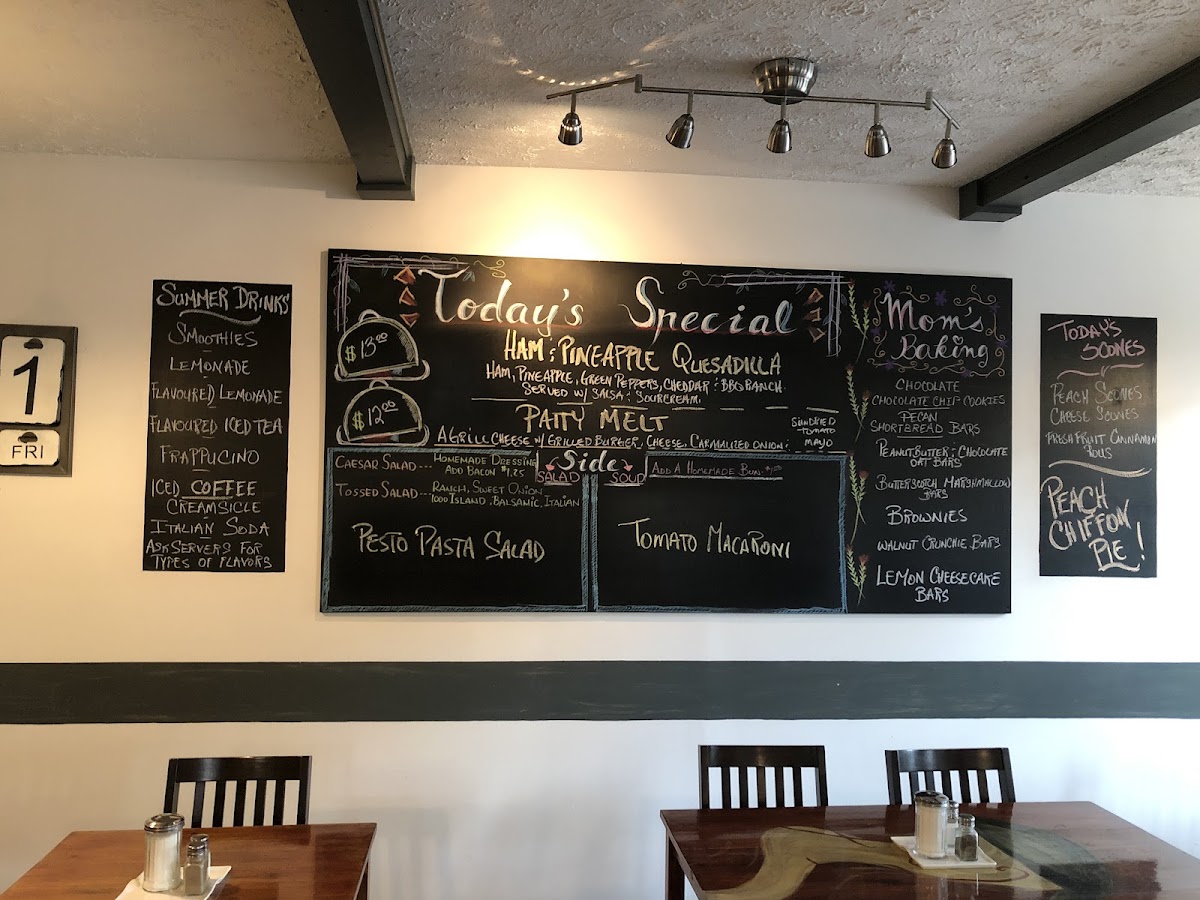 1
FRI
SUMMER DRINKS
SMOOTHIES
LEMONADE
FLAVOURED LEMONADE
FLAVOURED ICED TEA
FRAPPUCINO
ICED COFFEE
CREAMSICLE
ITALIAN SODA
ASK SERVERS FOR
TYPES OF FLAVORS
Today's Special
$13.00
HAM & PINEAPPLE QUESADILLA
HAM, PINEAPPLE, GREEN PEPPERS, CHEDDAR & BBQ RANCH.
SERVED W/ SALSA & SOURCREAM.
$12.00
PATTY MELT
A GRILL CHEESE W/ GRILLED BURGER, CHEESE, CARMALIZED ONION &
SUNDRIED
TOMATO
MAYO
Side
SALAD SOUP
CAESAR SALAD --- HOMEMADE DRESSING
ADD BACON $1.25
TOSSED SALAD --- RANCH, SWEET ONION
1000 ISLAND, BALSAMIC, ITALIAN
PESTO PASTA SALAD
ADD A HOMEMADE BUN
TOMATO MACARONI
Mom's
Baking
CHOCOLATE
CHOCOLATE CHIP COOKIES
PECAN
SHORTBREAD BARS
PEANUT BUTTER & CHOCOLATE
OAT BARS
BUTTERSCOTCH MARSHMALLOW
BARS
BROWNIES
WALNUT CRUNCHIE BARS
LEMON CHEESECAKE
BARS
TODAY'S
SCONES
PEACH SCONES
CHEESE SCONES
FRESH FRUIT CINNAMON
ROLLS
PEACH
CHIFFON
PIE!